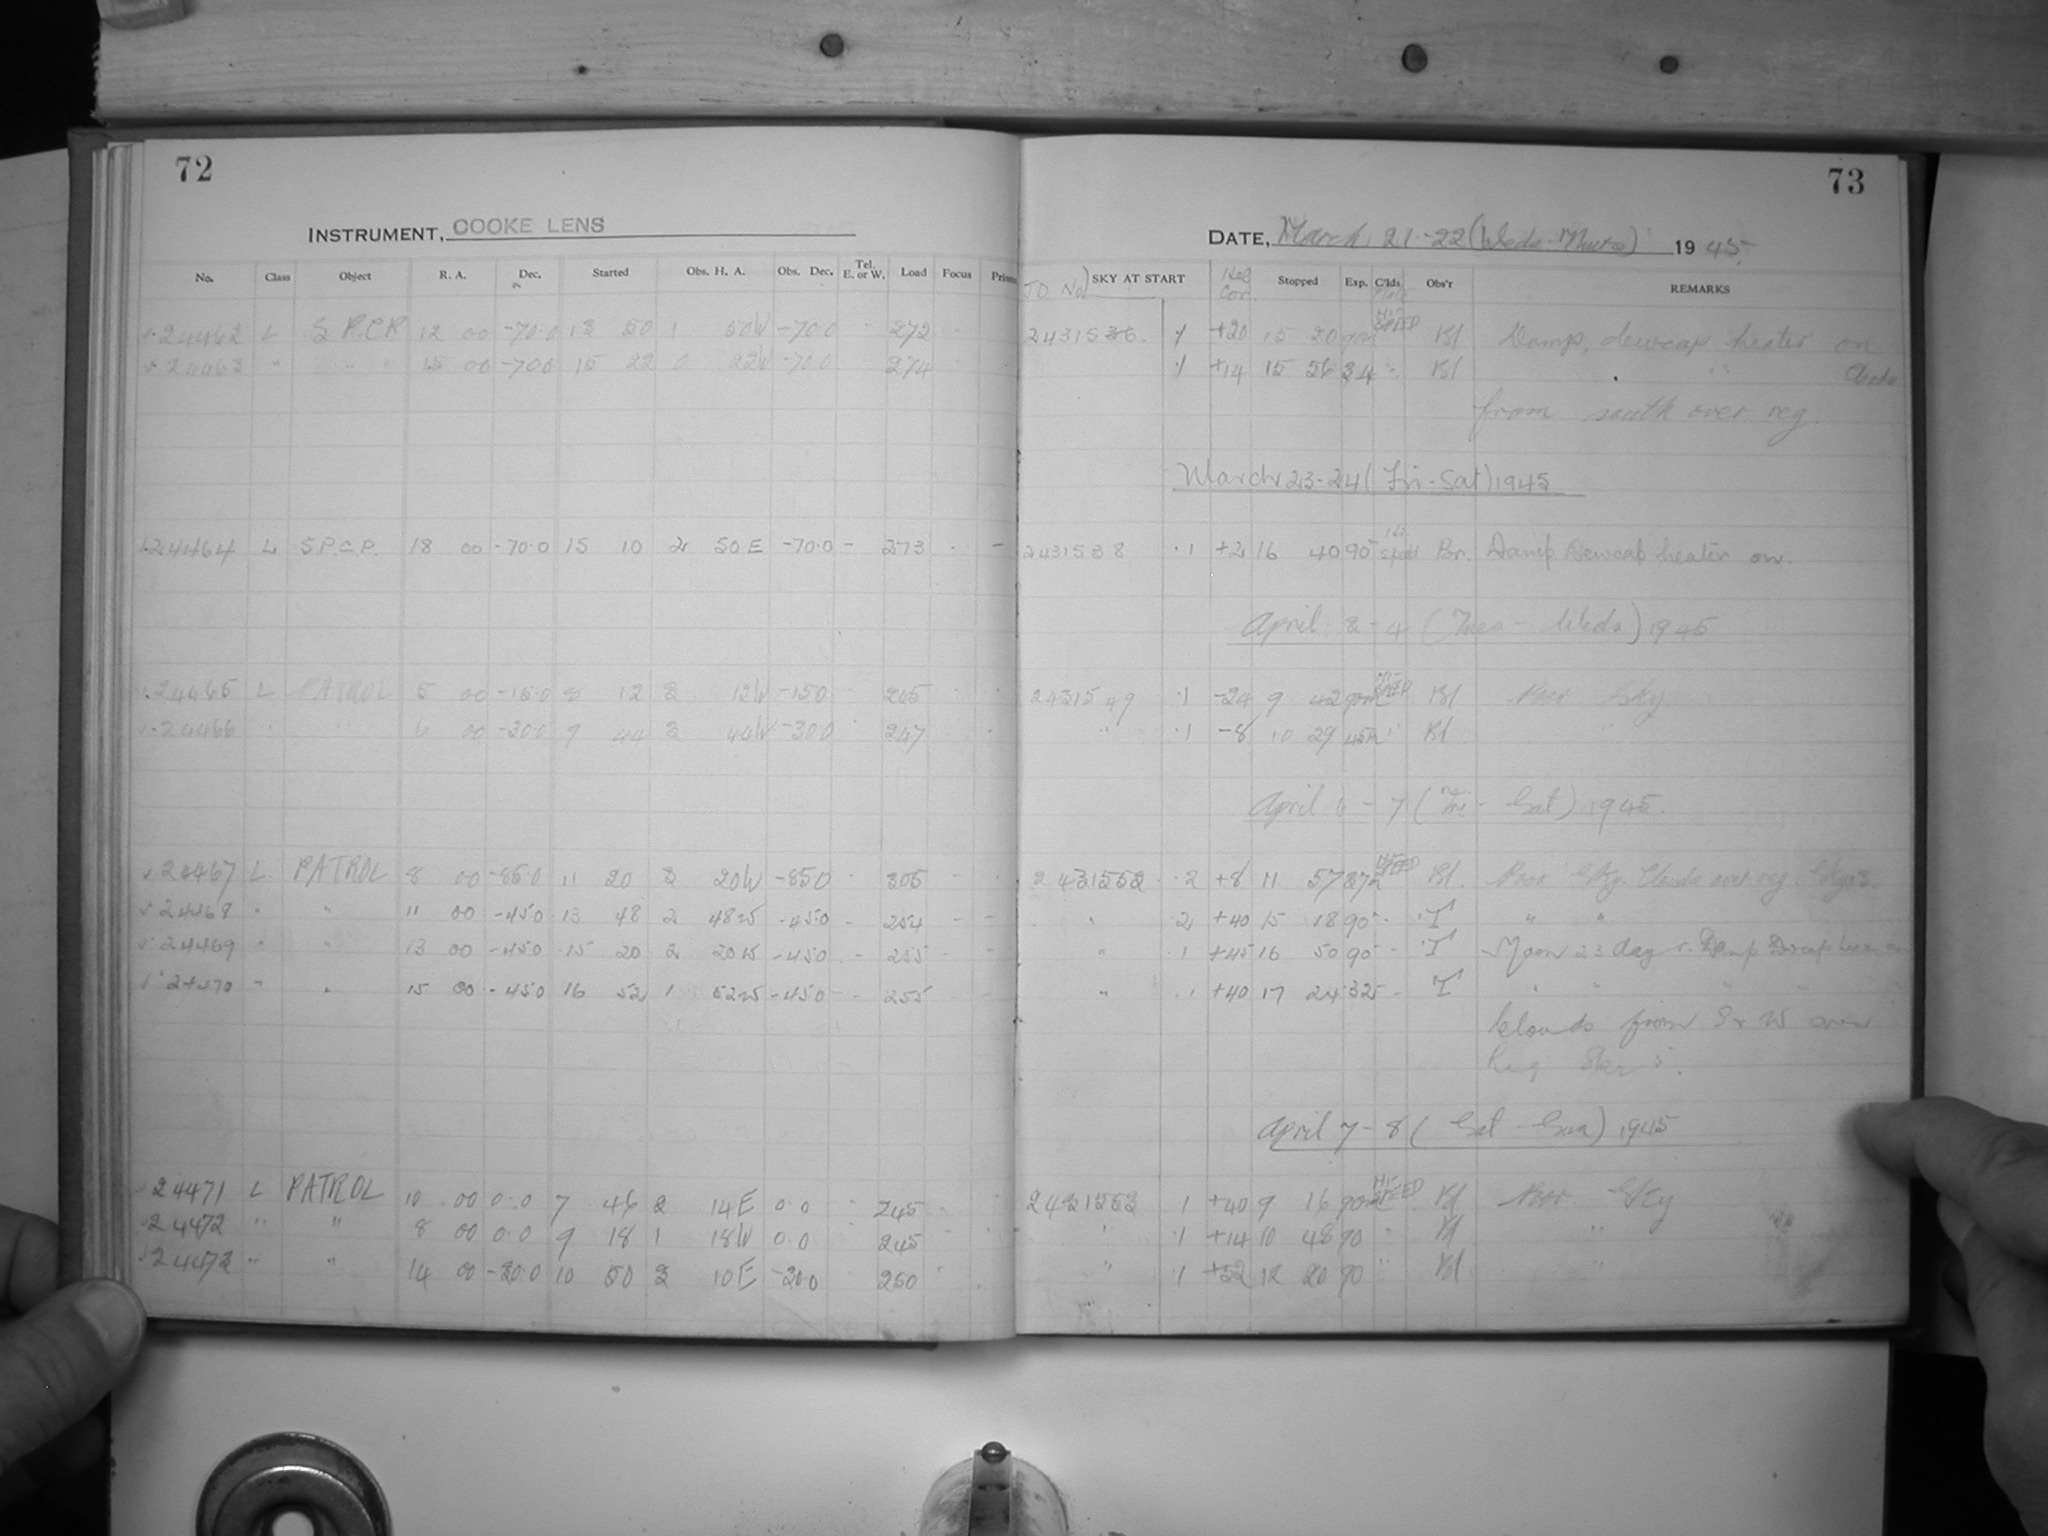 72
INSTRUMENT, COOKE LENS
No. Class Object R. A. Dec. Started Obs. H. A. Obs. Dec. Tel. E. or W. Load Focus Prism
24462 L S.P.C.P. 12 00 -70.0 13 50 1 50W -70.0 272
24463 " " 15 00 -70.0 15 22 0 22W -70.0 274
24464 L S.P.C.P. 18 00 -70.0 15 10 2 50E -70.0 - 273 - -
24465 L PATROL 5 00 -15.0 8 12 3 12W -15.0 245
24466 " " 6 00 -30.0 9 44 3 44W -30.0 247
24467 L PATROL 8 00 -85.0 11 20 3 20W -85.0 305
24468 " " 11 00 -45.0 13 48 2 48W -45.0 - 254 - -
24469 " " 13 00 -45.0 15 20 2 20W -45.0 - 255 - -
24470 " " 15 00 -45.0 16 52 1 52W -45.0 - 255 - -
24471 L PATROL 10 00 0.0 7 46 2 14E 0.0 245
24472 " " 8 00 0.0 9 18 1 18W 0.0 245
24473 " " 14 00 -30.0 10 50 3 10E -30.0 250
73
DATE, March 21-22 (Weds-Thurs) 1945
JD No SKY AT START Cor. Stopped Exp. C'lds. Plate Obs'r REMARKS
2431536 1 +20 15 20 90m HI-SPEED Bl Damp, dewcap heater on
1 +14 15 56 34 " Bl " Clouds
from south over reg.
March 23-24 (Fri-Sat) 1945
2431538 .1 +2 16 40 90 Speed Br. Damp Dewcap heater on.
April 3-4 (Tues-Weds) 1945
2431549 .1 -24 9 42 90m HI-SPEED Bl Poor Sky
" .1 -8 10 29 45m " Bl "
April 6-7 (Fri-Sat) 1945.
2431552 .2 +8 11 57 37m HI-SPEED Bl. Poor Sky. Clouds over reg.
" 2 +40 15 18 90 - T " "
" 1 +45 16 50 90 - T Moon 23 day r. Damp Dewcap heater on
" .1 +40 17 24 32 - T " " " "
Clouds from S & W over
Reg
April 7-8 (Sat-Sun) 1945
2431553 .1 +40 9 16 90m HI-SPEED Bl Poor Sky
" .1 +14 10 48 90 " Bl "
" .1 +52 12 20 90 " Bl "